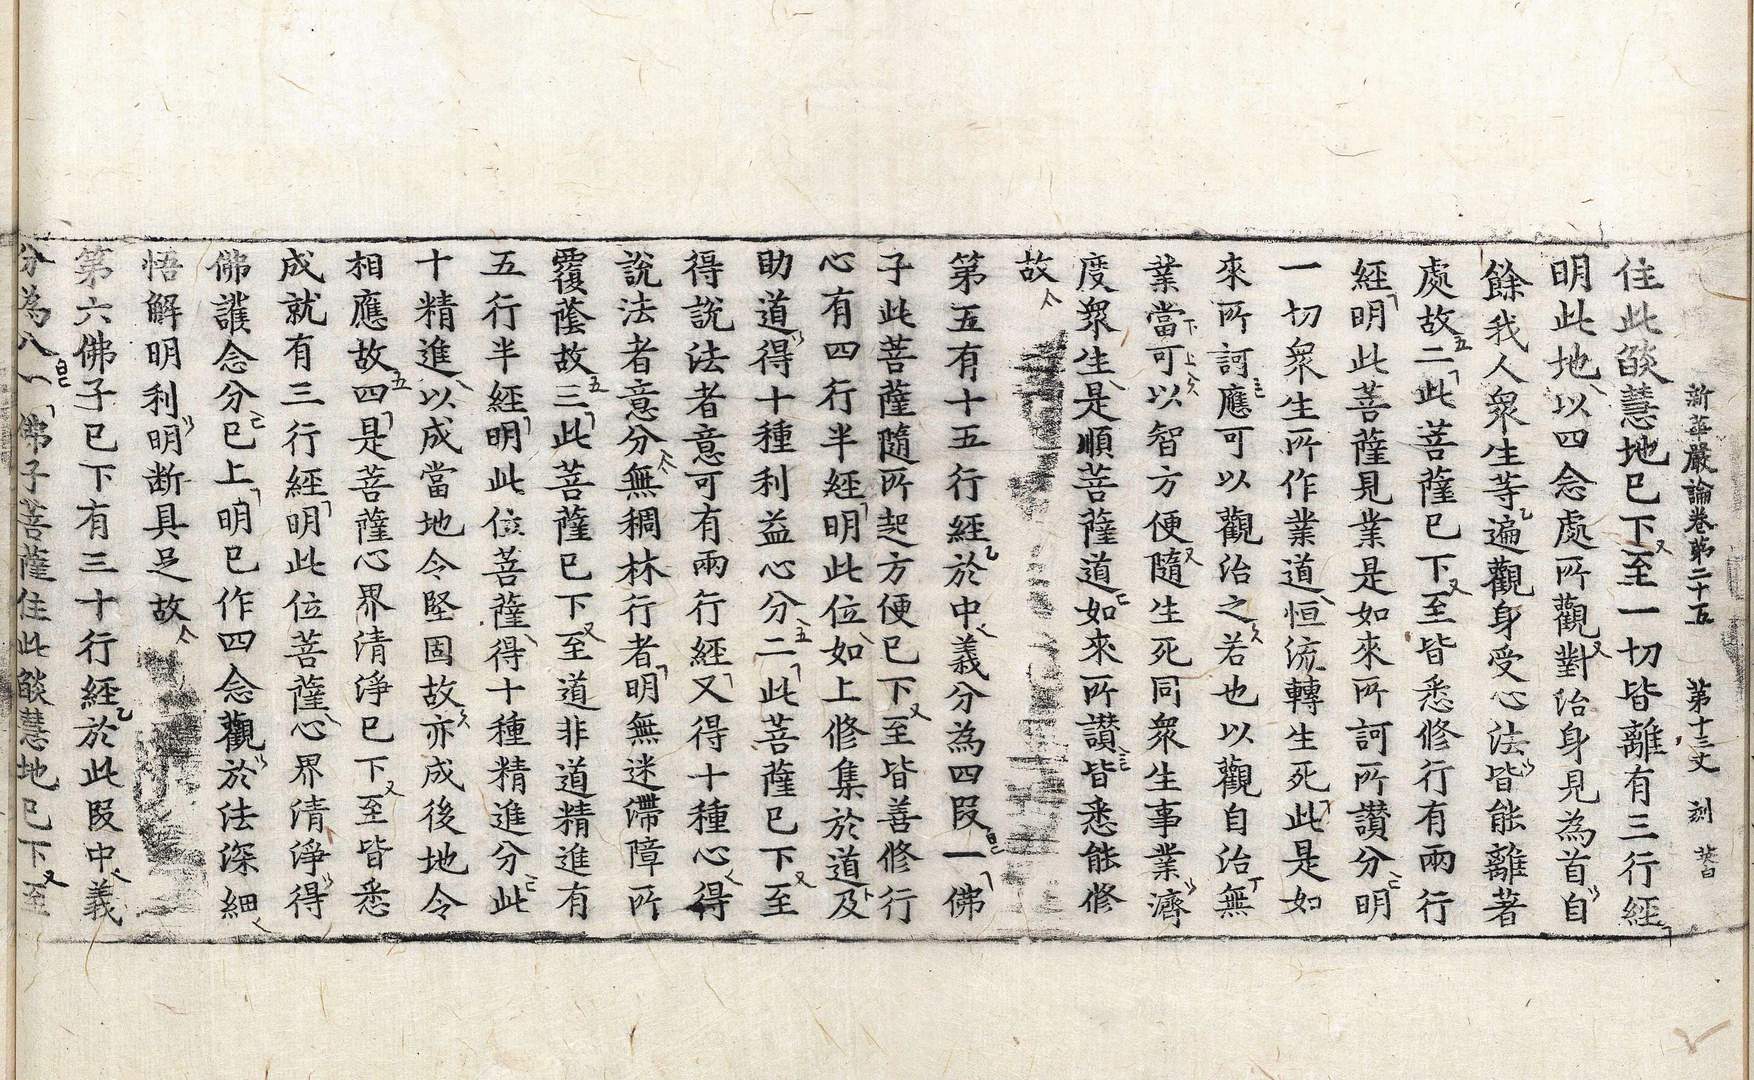 新華嚴論卷第二十五 第十三丈 刻
住此燄慧地已下至一切皆離有三行經
明此地以四念處所觀對治身見為首自
餘我人衆生等遍觀身受心法皆能離著
處故二此菩薩已下至皆悉修行有兩行
經明此菩薩見業是如來所訶所讃分明
一切衆生所作業道恒流轉生死此是如
來所訶應可以觀治之若也以觀自治無
業當可以智方便隨生死同衆生事業濟
度衆生是順菩薩道如來所讃皆悉能修
故
第五有十五行經於中義分為四段一佛
子此菩薩隨所起方便已下至皆善修行
心有四行半經明此位如上修集於道及
助道得十種利益心分二此菩薩已下至
得說法者意可有兩行經又得十種心得
說法者意分無稠林行者明無迷滯障所
覆蔭故三此菩薩已下至道非道精進有
五行半經明此位菩薩得十種精進分此
十精進以成當地令堅固故亦成後地令
相應故四是菩薩心界清淨已下至皆悉
成就有三行經明此位菩薩心界清淨得
佛護念分已上明已作四念觀於法深細
悟解明利明断具足故
第六佛子已下有三十行經於此段中義
分為八一佛子菩薩住此燄慧地已下至